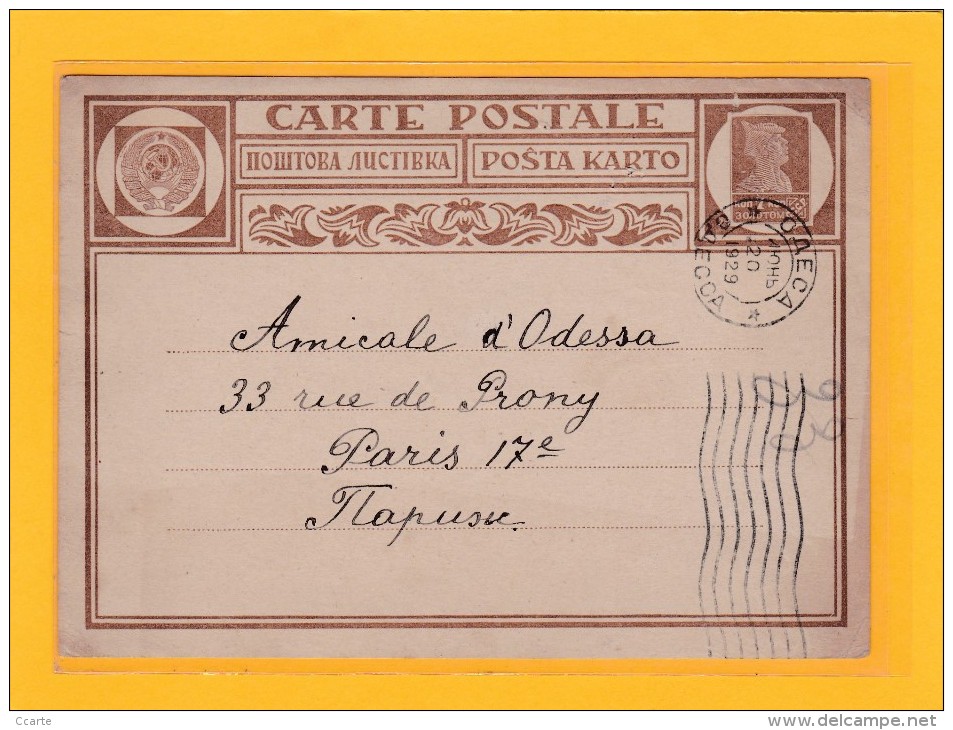 CARTE POSTALE
ПОШТОВА ЛИСТІВКА
POŜTA KARTO
КОП 7 КОП
ЗОЛОТОМ
ОДЕСА
ОДЕССА
ИЮНЬ
20
1929
Amicale d'Odessa
33 rue de Prony
Paris 17e
Париж
Ccarte
www.delcampe.net